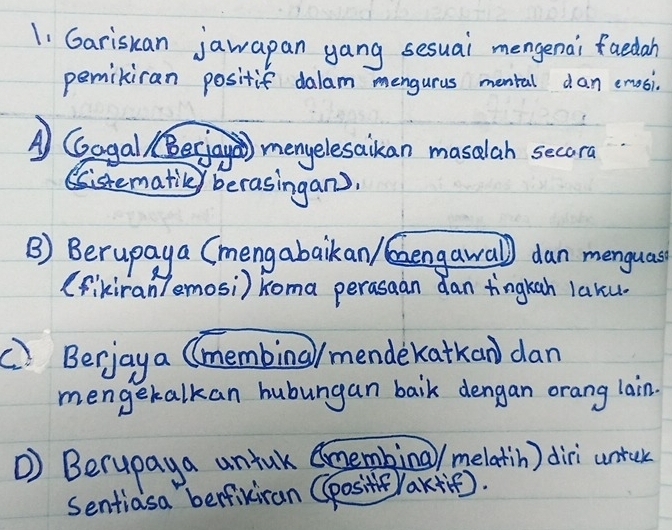 1. Gariskan jawapan yang sesuai mengenai faedah
pemikiran positif dalam mengurus mental dan emosi.
A) (Gagal/Berjaya) menyelesaikan masalah secara
(Sistematik/berasingan).
B) Berupaya (mengabaikan/mengawal) dan menguasi
(fikiran/emosi) koma perasaan dan tingkah laku.
C) Berjaya (membina/mendekatkan) dan
mengekalkan hubungan baik dengan orang lain.
D) Berupaya untuk (membina/melatih) diri untuk
sentiasa berfikiran (positif/aktif).